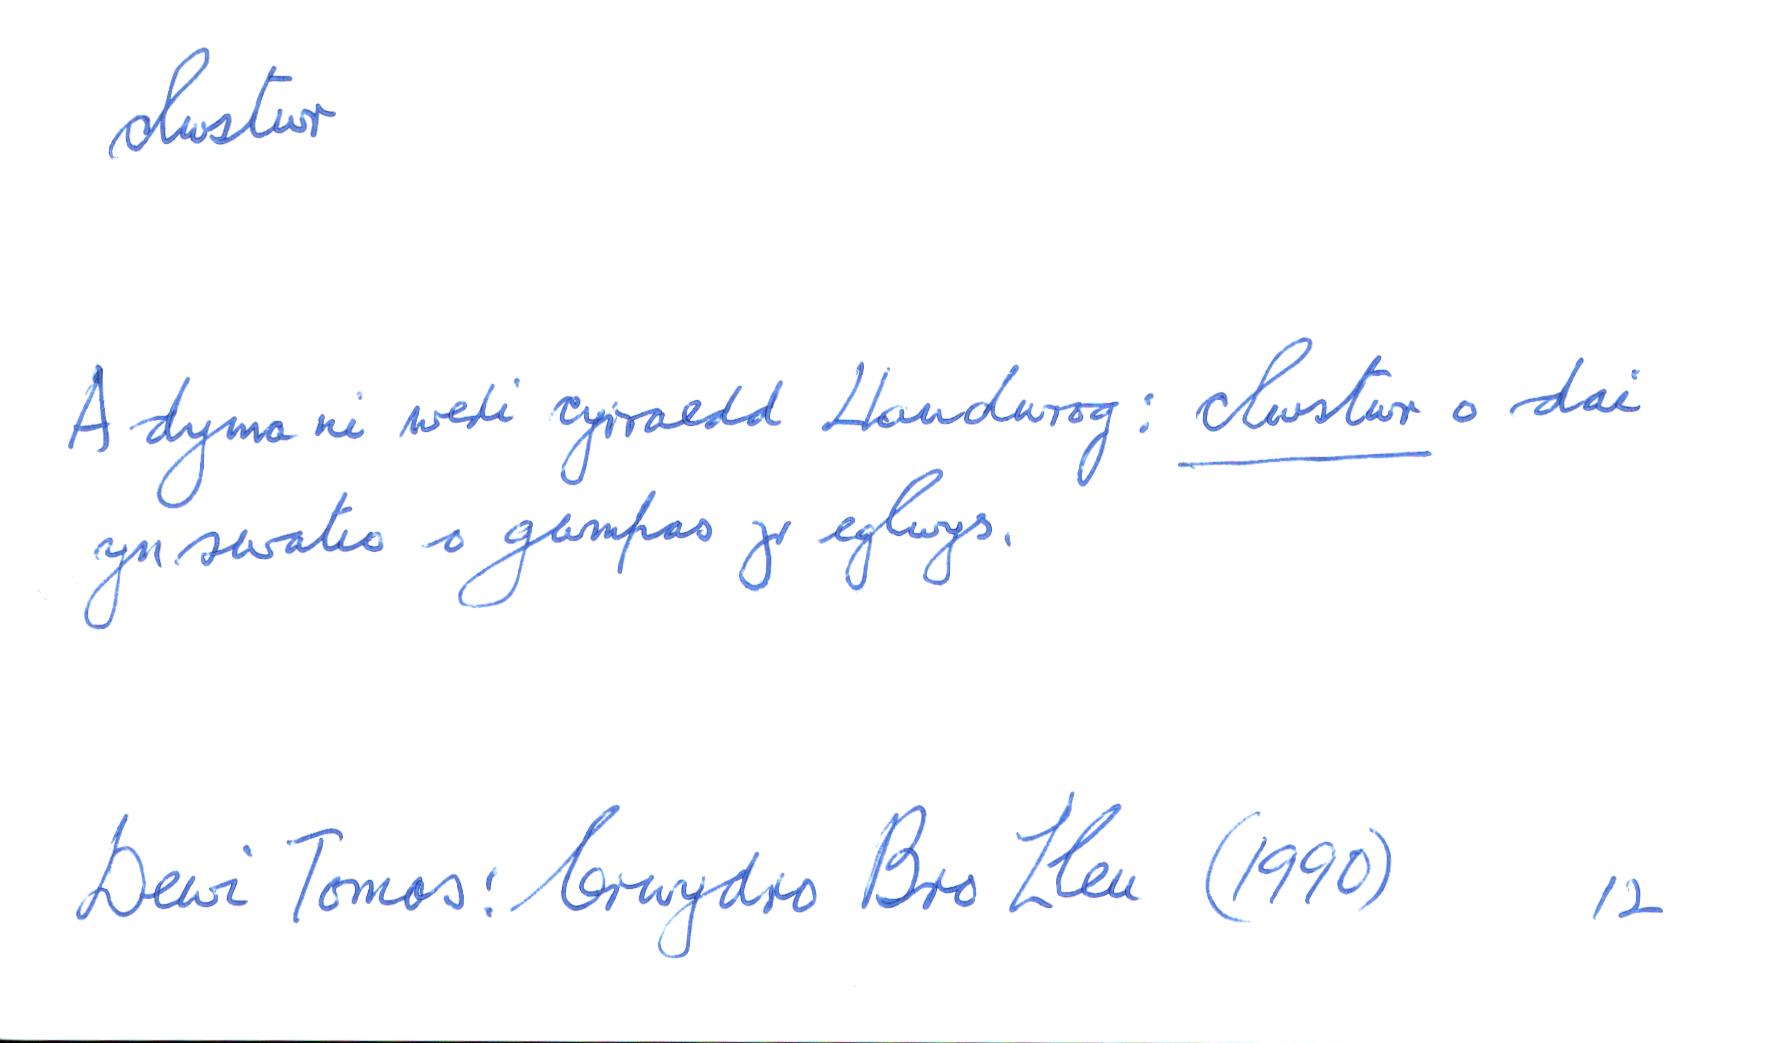 clwstwr
A dyma ni wedi cyrraedd Llandwrog: clwstwr o dai
yn swatio o gwmpas yr eglwys.
Dewi Tomos: Crwydro Bro Lleu (1990) 12